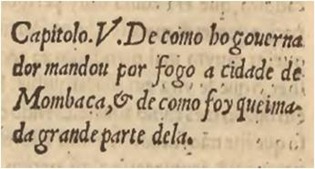 Capitolo.V.De como ho gouerna
dor mandou por fogo a cidade de
Mombaca,& de como foy queima-
da grande parte dela.